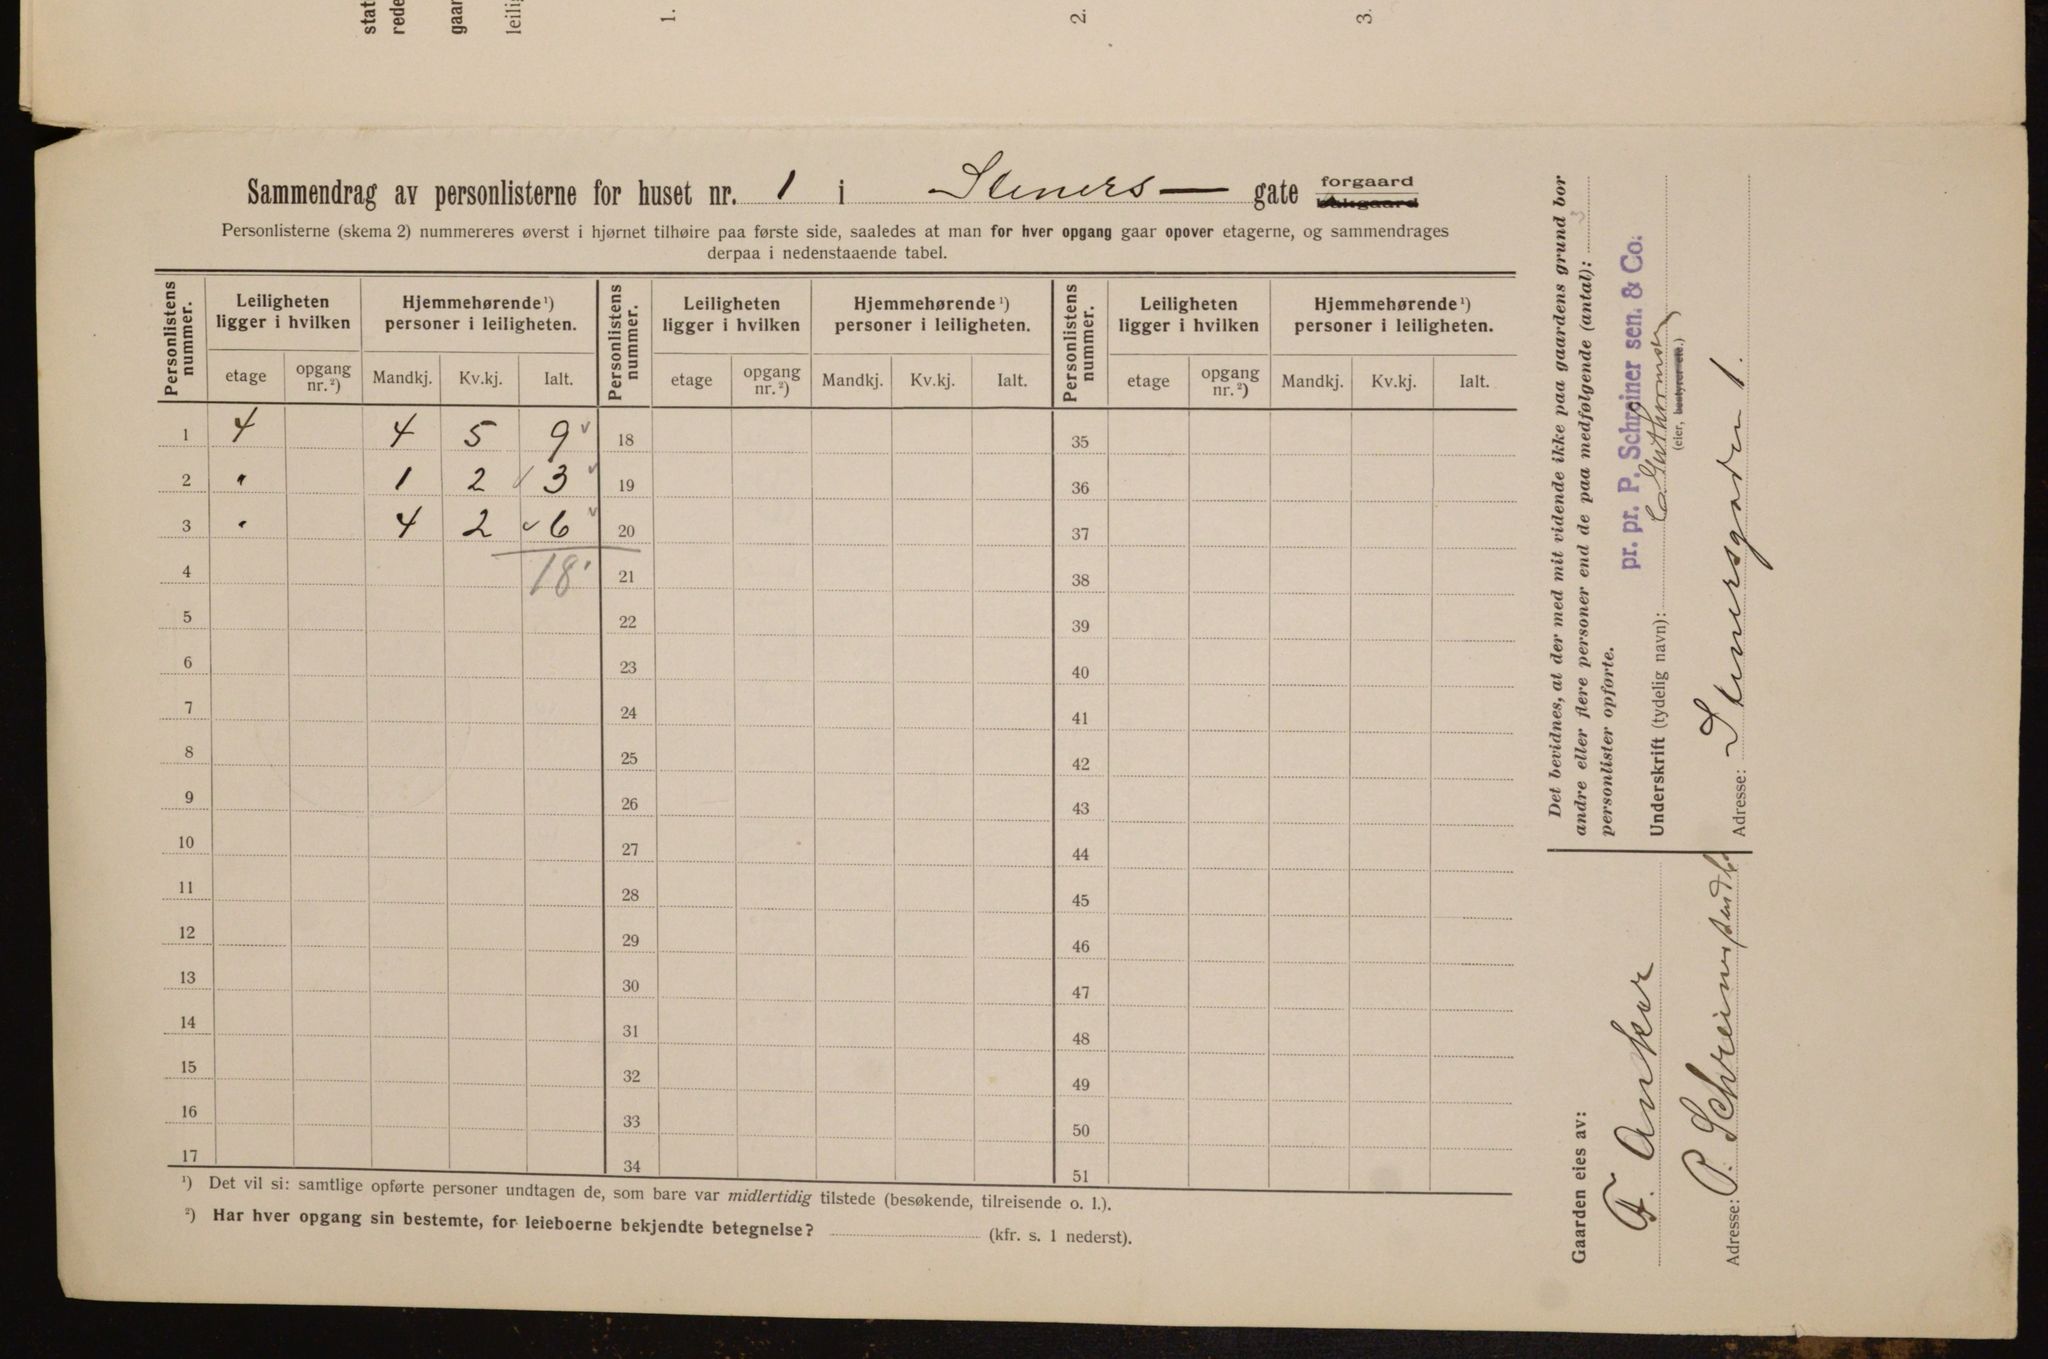 stat
rede
gaar
leilig
1.
2.
3.
Sammendrag av personlisterne for huset nr. 1 i Steners— gate forgaard
bakgaard
Personlisterne (skema 2) nummereres øverst i hjørnet tilhøire paa første side, saaledes at man for hver opgang gaar opover etagerne, og sammendrages
derpaa i nedenstaaende tabel.
Personlistens nummer. Leiligheten ligger i hvilken Hjemmehørende ¹) personer i leiligheten. Personlistens nummer. Leiligheten ligger i hvilken Hjemmehørende ¹) personer i leiligheten. Personlistens nummer. Leiligheten ligger i hvilken Hjemmehørende ¹) personer i leiligheten.
etage opgang nr. ²) Mandkj. Kv.kj. Ialt. etage opgang nr. ²) Mandkj. Kv.kj. Ialt. etage opgang nr. ²) Mandkj. Kv.kj. Ialt.
1 4 4 5 9 18 35
2 " 1 2 3 19 36
3 " 4 2 6 20 37
4 18 21 38
5 22 39
6 23 40
7 24 41
8 25 42
9 26 43
10 27 44
11 28 45
12 29 46
13 30 47
14 31 48
15 32 49
16 33 50
17 34 51
¹) Det vil si: samtlige opførte personer undtagen de, som bare var midlertidig tilstede (besøkende, tilreisende o. l.).
²) Har hver opgang sin bestemte, for leieboerne bekjendte betegnelse? (kfr. s. 1 nederst).
Det bevidnes, at der med mit vidende ikke paa gaardens grund bor
andre eller flere personer end de paa medfølgende (antal): 3
personlister opførte.
pr. pr. P. Schreiner sen. & Co.
Underskrift (tydelig navn):
(eier, bestyrer etc.)
Adresse: Stenersgaden 1.
Gaarden eies av:
F. Anker
Adresse: P. Schreiner sen & Co